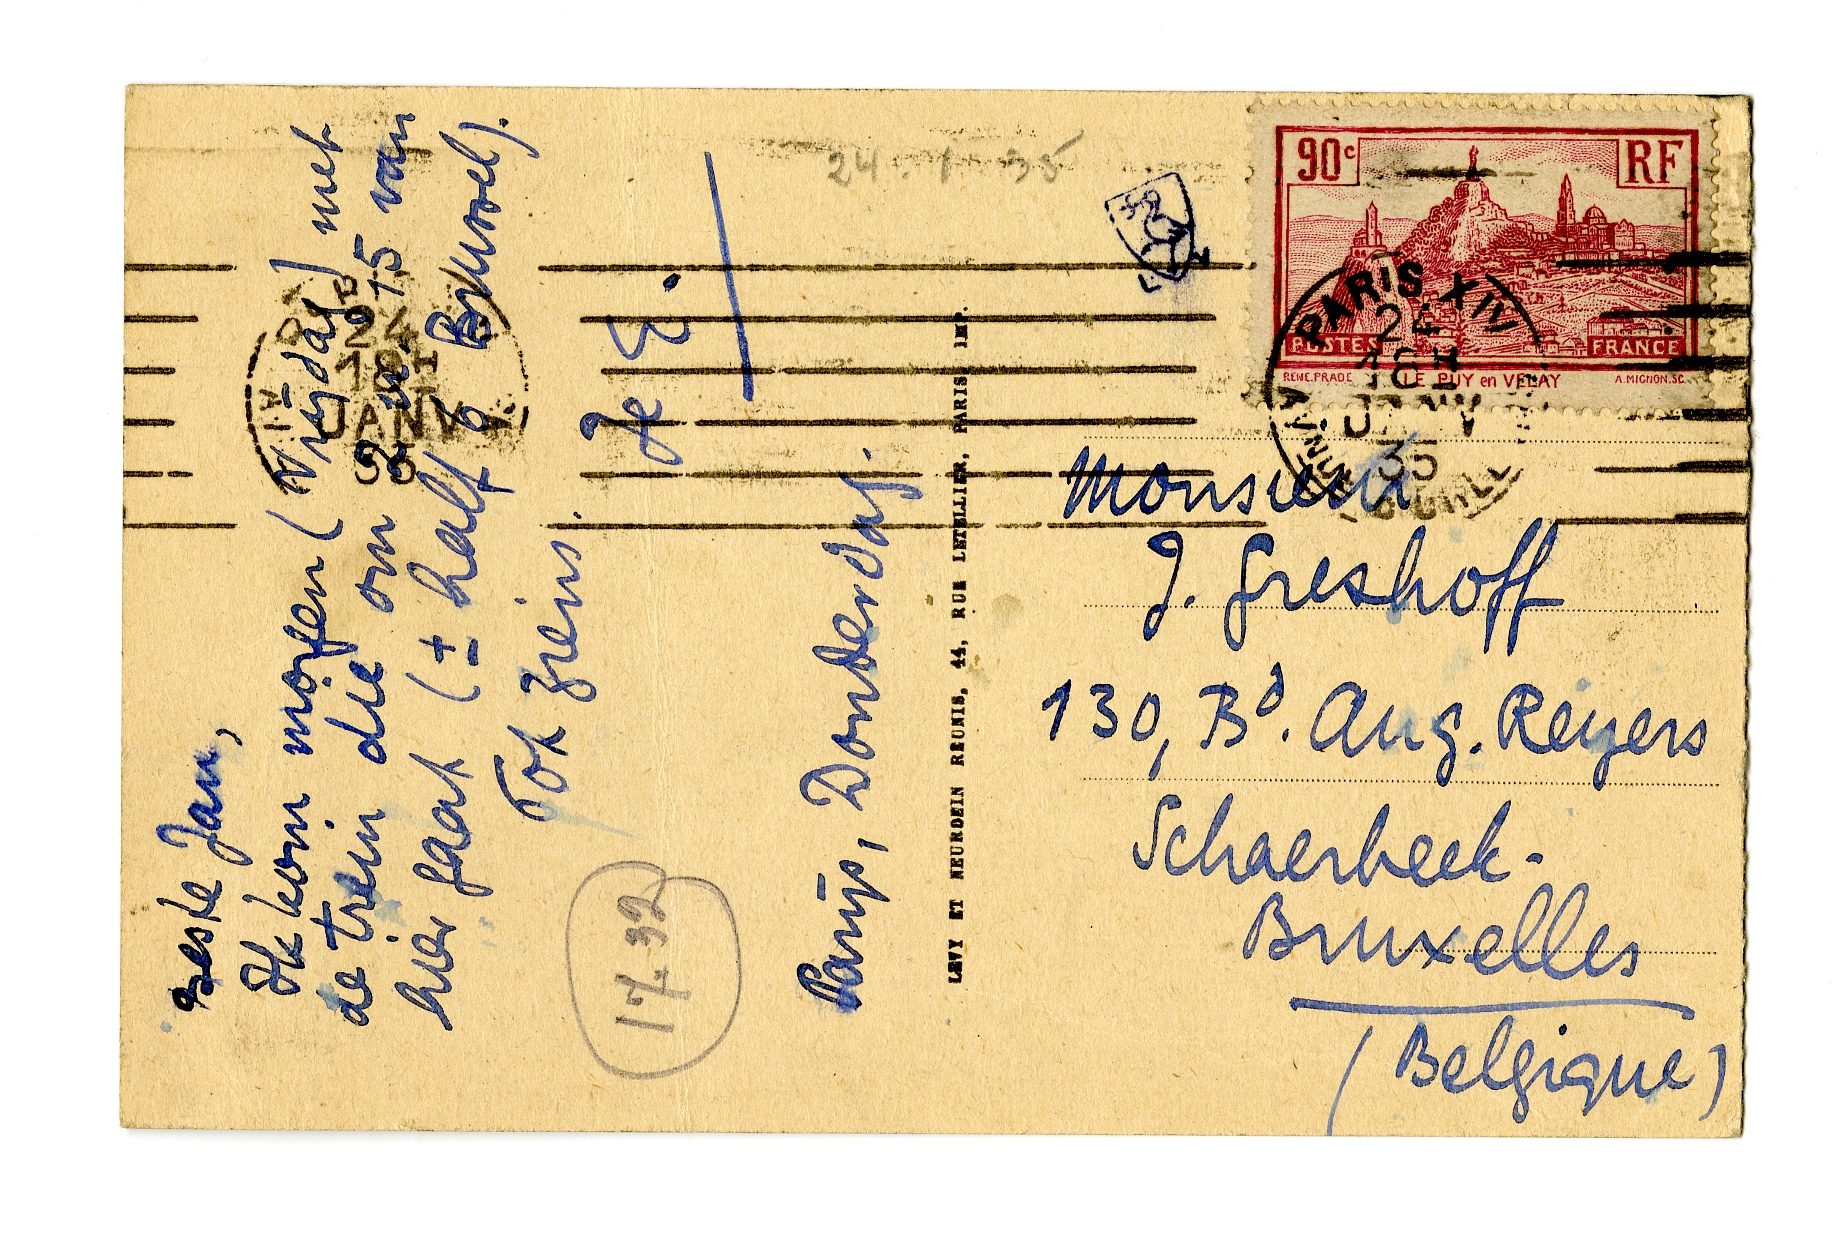 Beste Jan,
Ik kom morgen (Vrijdag) met
de trein die om 2 u. 15 van
hier gaat (± half 6 Brussel).
Tot ziens.
Je E.
Parijs, Donderdag.
17.32
LEVY ET NEURDEIN RÉUNIS, 44, RUE LETELLIER, PARIS IMP.
24.1.35
90c
RF
POSTES
FRANCE
RENE.PRADE
LE PUY en VELAY
A.MIGNON.SC.
PARIS XIV
24
18H
JANV
35
24
18H
JANV
35
Monsieur
J. Greshoff
130, Bd. Aug. Reyers
Schaerbeek-
Bruxelles
(Belgique)